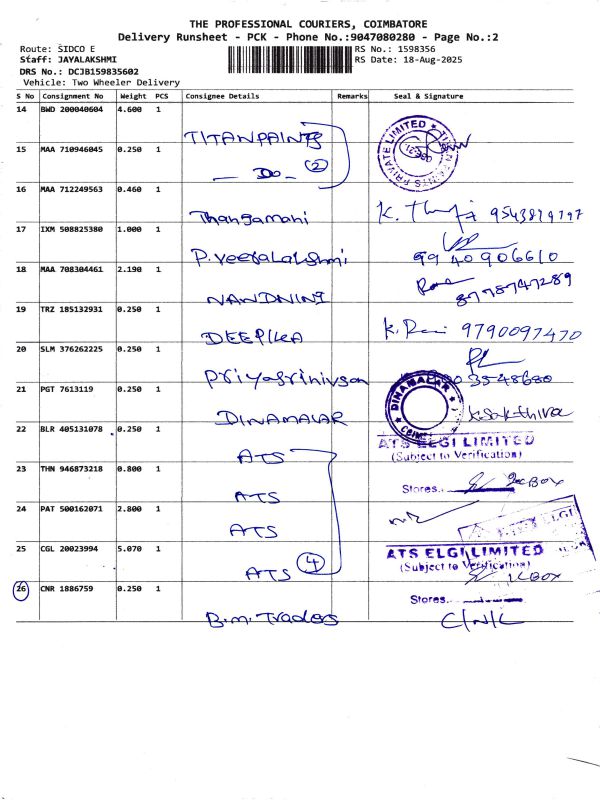 THE PROFESSIONAL COURIERS, COIMBATORE
Delivery Runsheet - PCK - Phone No.:9047080280 - Page No.:2
Route: SIDCO E RS No.: 1598356
Staff: JAYALAKSHMI RS Date: 18-Aug-2025
DRS No.: DCJB159835602
Vehicle: Two Wheeler Delivery
S No Consignment No Weight PCS Consignee Details Remarks Seal & Signature
14 BWD 200040604 4.600 1
TITANPAINTS
15 MAA 710946045 0.250 1
— Do — (2)
16 MAA 712249563 0.460 1
Thangamani K. 9543819797
17 IXM 508825380 1.000 1
P.Veeralakshmi 9940906610
18 MAA 708304461 2.190 1
NANDNINI 8778747289
19 TRZ 185132931 0.250 1
DEEPIKA K. 9790097470
20 SLM 376262225 0.250 1
Priyasrinivsan
21 PGT 7613119 0.250 1
DINAMALAR DINAMALAR K.Sakthivel
22 BLR 405131078 0.250 1
ATS ATS ELGI LIMITED
(Subject to Verification)
23 THN 946873218 0.800 1
ATS Stores BOX
24 PAT 500162071 2.800 1
ATS
25 CGL 20023994 5.070 1
ATS (4) ATS ELGI LIMITED
(Subject to Verification)
1 BOX
26 CNR 1886759 0.250 1
Stores
B.M. Traders C/N/L